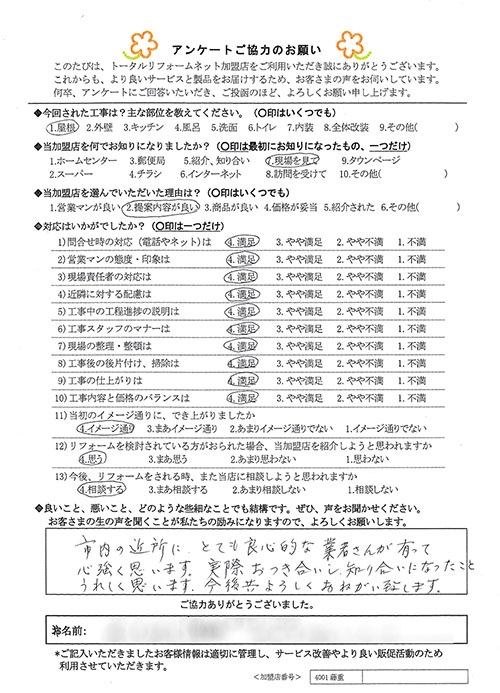 アンケートご協力のお願い
このたびは、トータルリフォームネット加盟店をご利用いただき誠にありがとうございます。
これからも、より良いサービスと製品をお届けするため、お客さまの声をお伺いしています。
何卒、アンケートにご回答いただいき、ご投函のほど、よろしくお願い申し上げます。
◆今回された工事は？主な部位を教えてください。（〇印はいくつでも）
1.屋根 2.外壁 3.キッチン 4.風呂 5.洗面 6.トイレ 7.内装 8.全体改装 9.その他( )
◆当加盟店を何でお知りになりましたか？（〇印は最初にお知りになったもの、一つだけ）
1.ホームセンター 3.郵便局 5.紹介、知り合い 7.現場を見て 9.タウンページ
2.スーパー 4.チラシ 6.インターネット 8.訪問を受けて 10.その他( )
◆当加盟店を選んでいただいた理由は？（〇印はいくつでも）
1.営業マンが良い 2.提案内容が良い 3.商品が良い 4.価格が妥当 5.紹介された 6.その他( )
◆対応はいかがでしたか？（〇印は一つだけ）
1)問合せ時の対応（電話やネット）は 4.満足 3.やや満足 2.やや不満 1.不満
2)営業マンの態度・印象は 4.満足 3.やや満足 2.やや不満 1.不満
3)現場責任者の対応は 4.満足 3.やや満足 2.やや不満 1.不満
4)近隣に対する配慮は 4.満足 3.やや満足 2.やや不満 1.不満
5)工事中の工程進捗の説明は 4.満足 3.やや満足 2.やや不満 1.不満
6)工事スタッフのマナーは 4.満足 3.やや満足 2.やや不満 1.不満
7)現場の整理・整頓は 4.満足 3.やや満足 2.やや不満 1.不満
8)工事後の後片付け、掃除は 4.満足 3.やや満足 2.やや不満 1.不満
9)工事の仕上がりは 4.満足 3.やや満足 2.やや不満 1.不満
10)工事内容と価格のバランスは 4.満足 3.やや満足 2.やや不満 1.不満
11)当初のイメージ通りに、でき上がりましたか
4.イメージ通り 3.まあイメージ通り 2.あまりイメージ通りでない 1.イメージ通りでない
12)リフォームを検討されている方がおられた場合、当加盟店を紹介しようと思われますか
4.思う 3.まあ思う 2.あまり思わない 1.思わない
13)今後、リフォームをされる時、また当店に相談しようと思われますか
4.相談する 3.まあ相談する 2.あまり相談しない 1.相談しない
◆良いこと、悪いこと、どのような些細なことでも結構です。ぜひ、声をお聞かせください。
お客さまの生の声を聞くことが私たちの励みになりますので、よろしくお願いします。
市内の近所に、とても良心的な業者さんが有って
心強く思います。実際おつき合いし、知り合いになったこと
うれしく思います。今後共よろしくおねがい致します。
ご協力ありがとうございました。
お名前:
*ご記入いただきましたお客様情報は適切に管理し、サービス改善やより良い販促活動のため
利用させていただきます。
<加盟店番号> 4001藤重